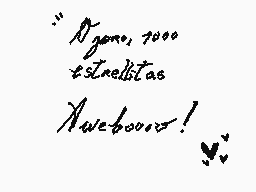 " D jono, 1000
estrellitas
Aweboooo!